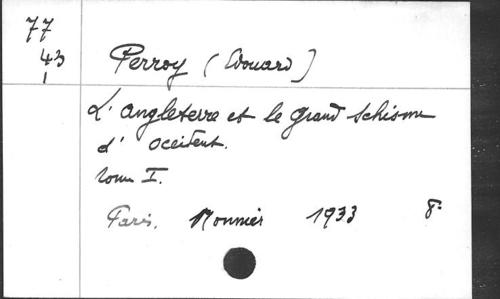 77
43
1
Perroy (Edouard)
L'angleterre et le grand schisme
d'occident.
tome I.
Paris. Monnier 1933 8°